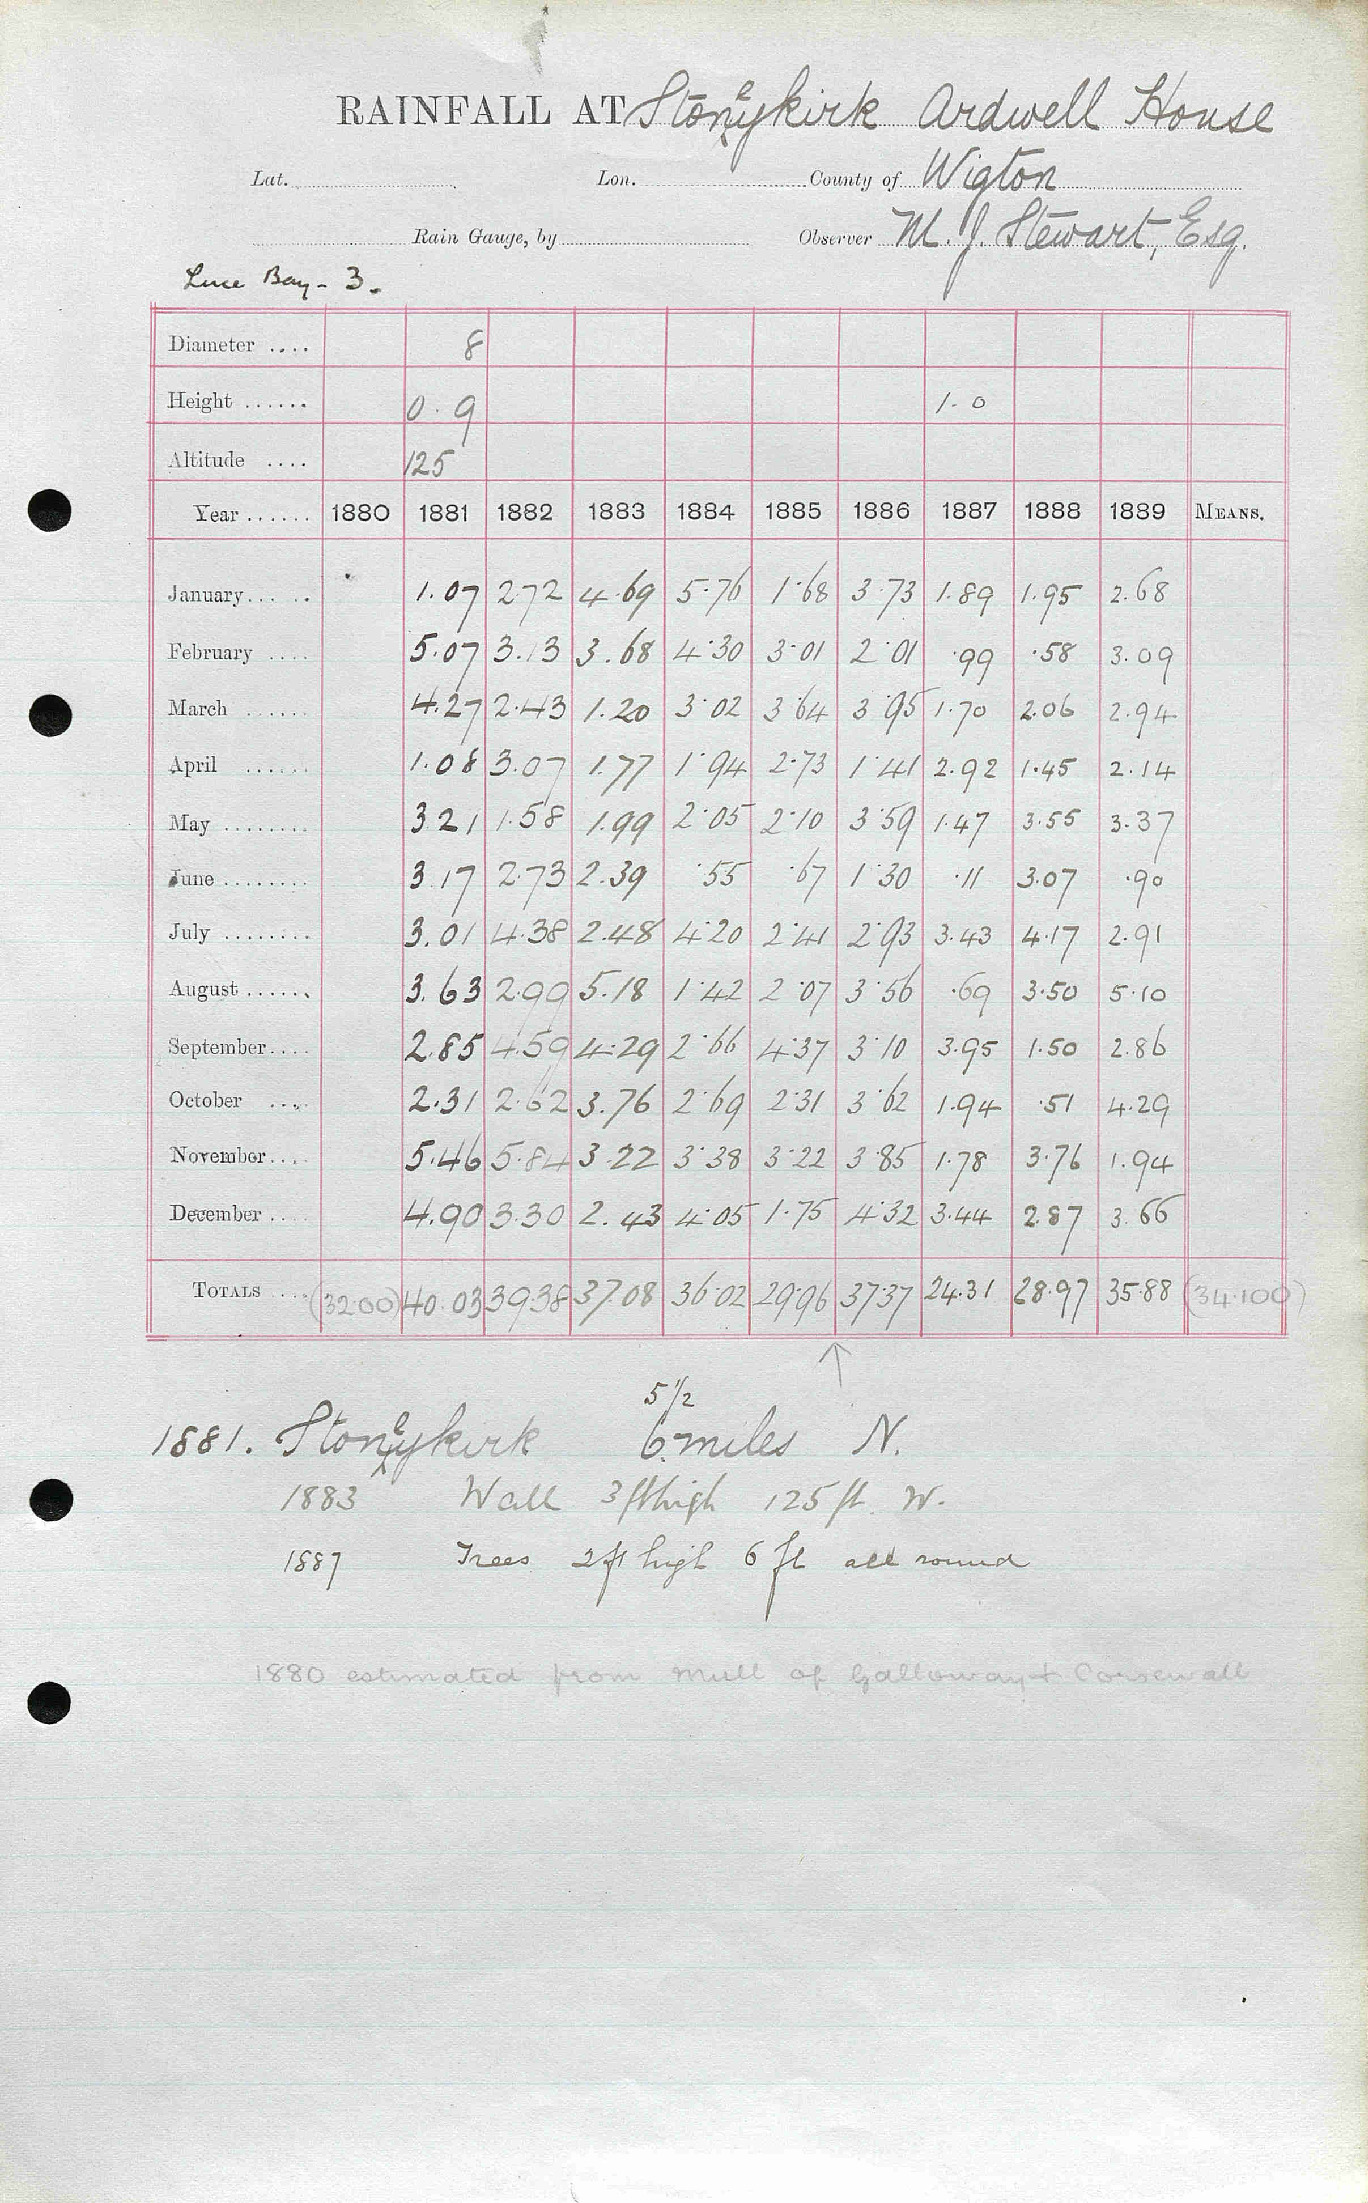 RAINFALL AT Stoneykirk Ardwell House
Lat. Lon. County of Wigton
Rain Gauge, by Observer M. J. Stewart, Esq.
Luce Bay - 3.
Diameter .... 8
Height ...... 0.9 1.0
Altitude .... 125
Year ...... 1880 1881 1882 1883 1884 1885 1886 1887 1888 1889 MEANS.
January...... 1.07 2.72 4.69 5.76 1.68 3.73 1.89 1.95 2.68
February .... 5.07 3.13 3.68 4.30 3.01 2.01 .99 .58 3.09
March ...... 4.27 2.43 1.20 3.02 3.64 3.95 1.70 2.06 2.94
April ...... 1.08 3.07 1.77 1.94 2.73 1.41 2.92 1.45 2.14
May ........ 3 21 1.58 1.99 2.05 2.10 3.59 1.47 3.55 3.37
June ........ 3.17 2.73 2.39 .55 .67 1.30 .11 3.07 .90
July ........ 3.01 4.38 2.48 4.20 2.41 2.93 3.43 4.17 2.91
August ...... 3.63 2.99 5.18 1.42 2.07 3.56 .69 3.50 5.10
September.... 2.85 4.59 4.29 2.66 4.37 3.10 3.95 1.50 2.86
October .... 2.31 2.62 3.76 2.69 2.31 3.62 1.94 .51 4.29
November.... 5.46 5.84 3.22 3.38 3.22 3.85 1.78 3.76 1.94
December .... 4.90 3.30 2.43 4.05 1.75 4.32 3.44 2.87 3.66
TOTALS .... (32.00) 40.03 39.38 37.08 36.02 29.96 37.37 24.31 28.97 35.88 (34.100)
5½
1881. Stoneykirk 6 miles N.
1883 Wall 3 ft high 125 ft W.
1887 Trees 2 ft high 6 ft all round
1880 estimated from Mull of Galloway + Corsewall